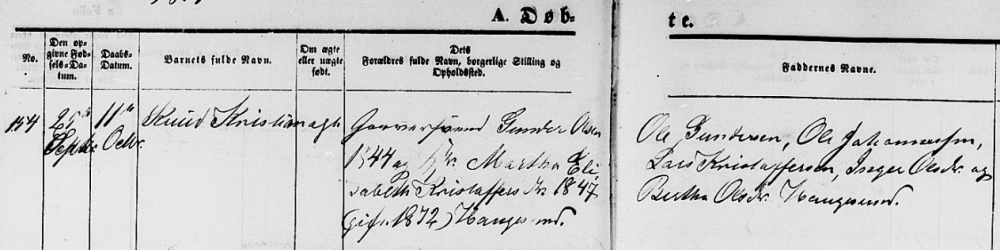 A. Døb-
te.
No.
Den op-
givne Fød-
sels-Da-
tum.
Daabs-
Datum.
Barnets fulde Navn.
Om ægte
eller uægte
født.
Dets
Forældres fulde Navn, borgerlige Stilling og
Opholdssted.
Faddernes Navne.
154
25de
Septbr
11te
Octbr
Knud Kristian
ægte
Garversvend Gunder Olsen
1844 og Hr. Martha Eli
sabeth Kristoffers Dr. 1847
(gift 1872) Haugesund.
Ole Gundersen, Ole Johannessen,
Lars Kristoffersen, Inger Olsdr. og
Bertha Olsdr. Haugesund.